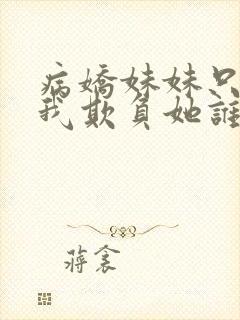 病嬌妹妹只
我欺負她誰
蔣衾